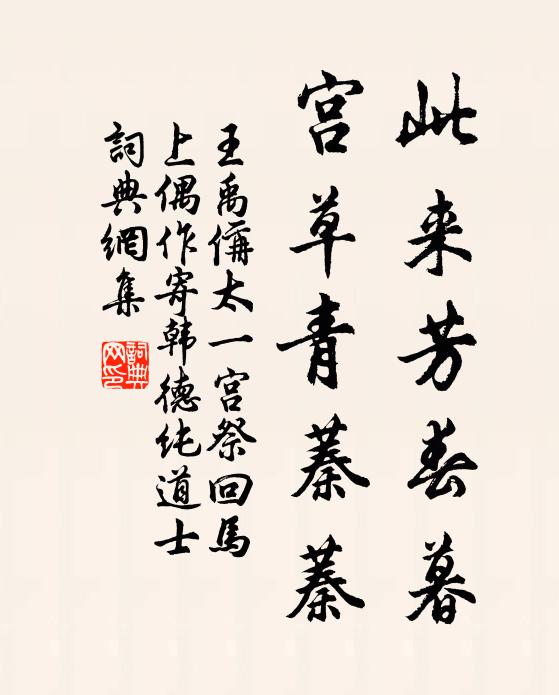 此来芳春暮
宫草青蓁蓁
王禹偁太一宫祭回馬
上偶作寄韩德纯道士
詞典網集
詞典网印